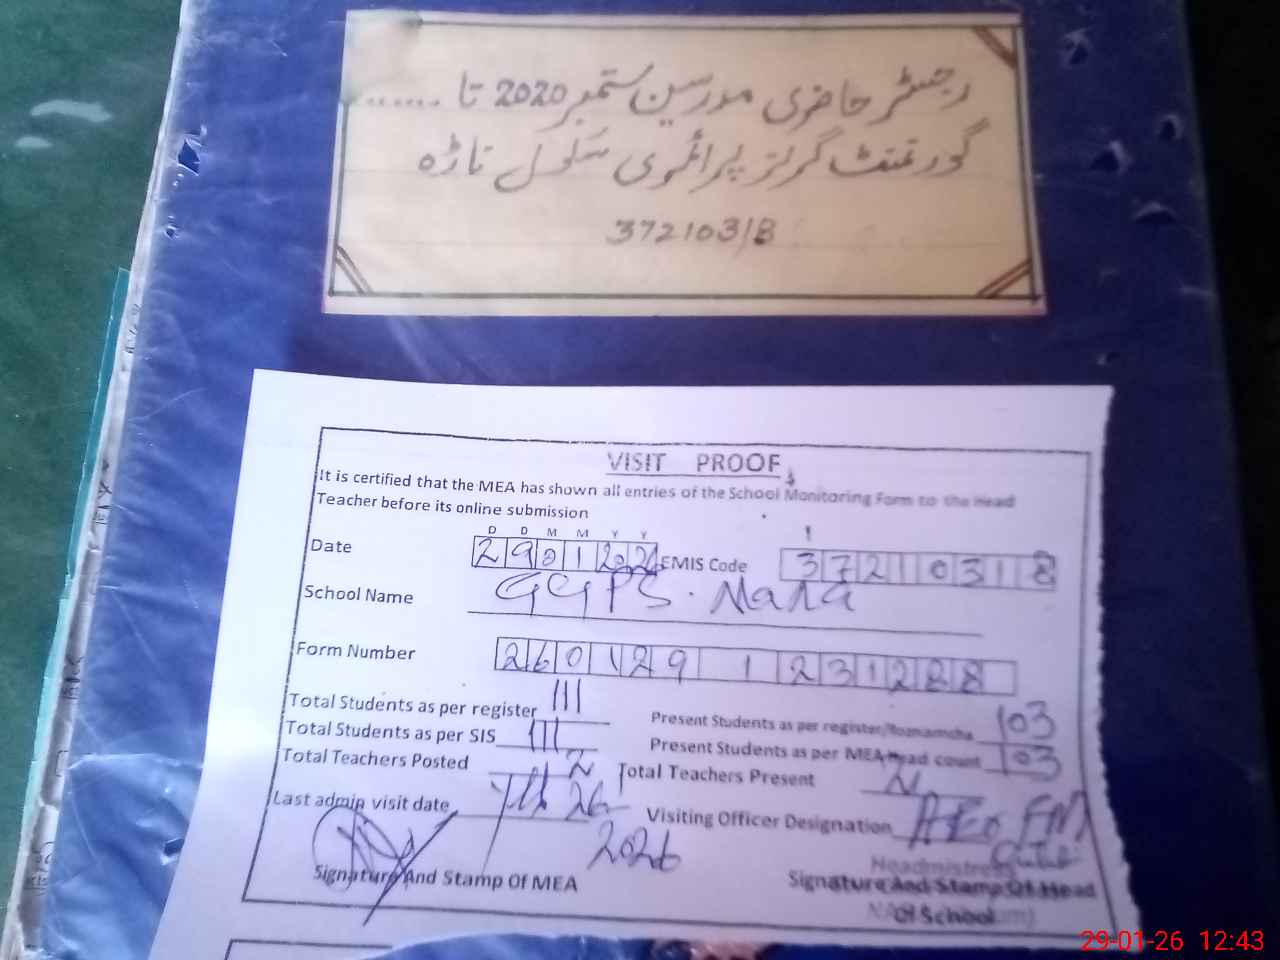 رجسٹر حاضری مدرسین ستمبر 2020 تا .......
گورنمنٹ گرلز پرائمری سکول ناڑہ
372103/B
VISIT PROOF
It is certified that the MEA has shown all entries of the School Monitoring Form to the Head
Teacher before its online submission
D D M M Y Y
Date 29012026 EMIS Code 37210318
School Name GGPS. Nara
Form Number 260129 1 231288
Total Students as per register 111 Present Students as per register/Roznamcha 103
Total Students as per SIS 111 Present Students as per MEA Head count 103
Total Teachers Posted 2 Total Teachers Present 2
Last admin visit date 26 Visiting Officer Designation AEO FM
2026
Headmistress
Signature And Stamp Of MEA Signature And Stamp Of Head
Of School
29-01-26 12:43